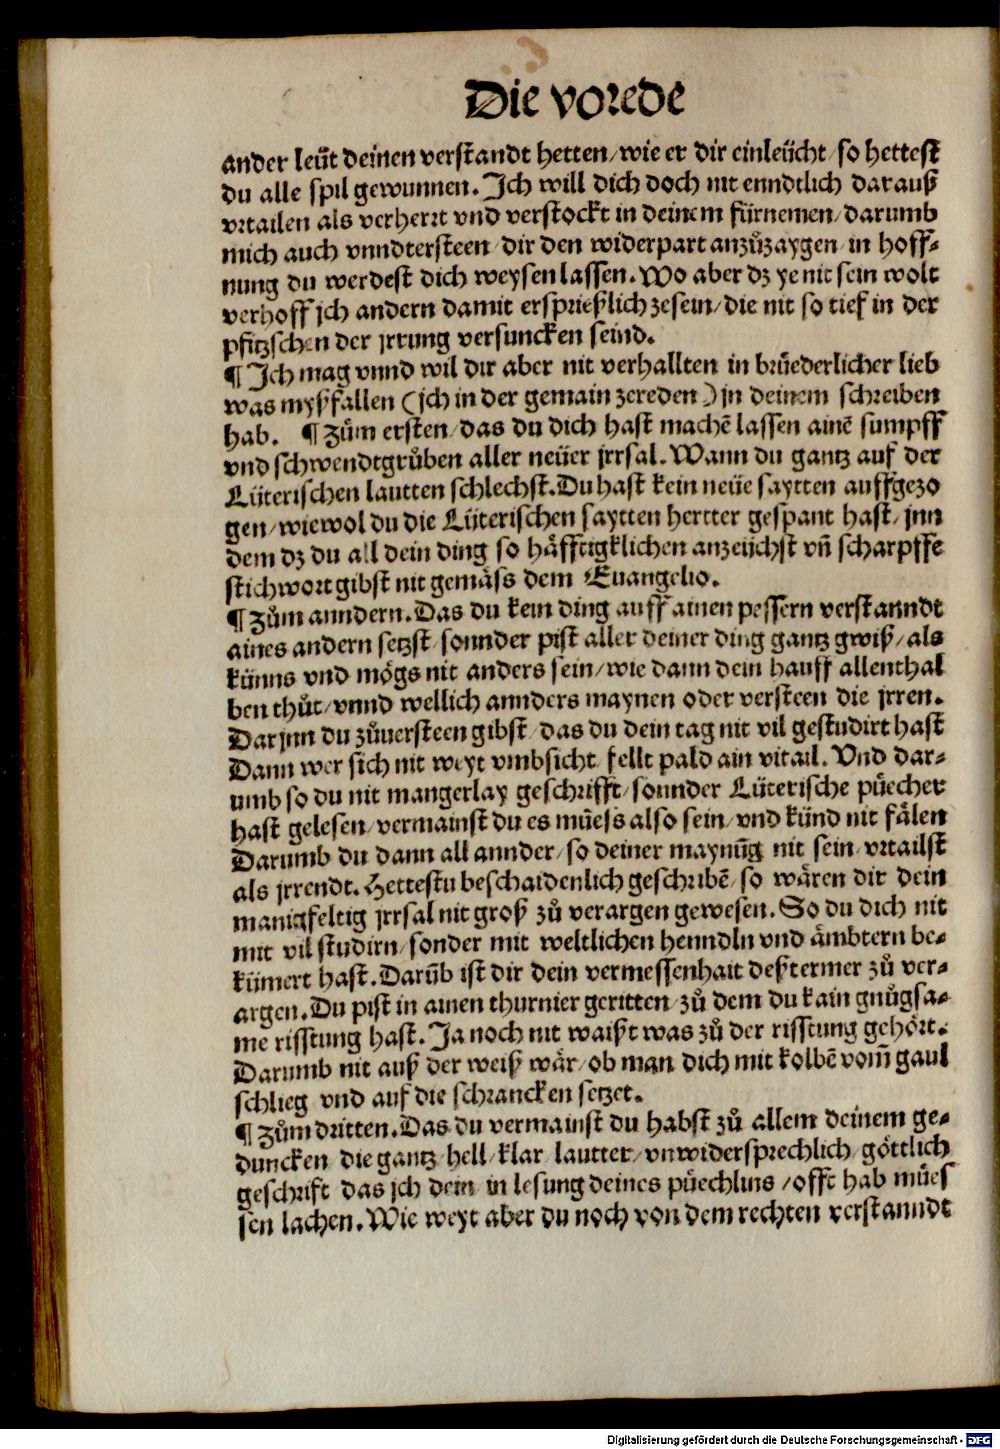 Die vorede
ander leüt deinen verstandt hetten/wie er dir einleücht/so hettest
du alle spil gewunnen. Ich will dich doch nit enndtlich darauß
vrtailen als verherrt vnd verstockt in deinem fürnemen/darumb
mich auch vnndtersteen/dir den widerpart anzůzaygen/in hoff-
nung du werdest dich weysen lassen. Wo aber dz ye nit sein wolt
verhoff jch andern damit ersprießlich zesein/die nit so tief in der
pfitzschen der jrrung versuncken seind.
¶ Ich mag vnnd wil dir aber nit verhallten in brüederlicher lieb
was myßfallen (jch in der gemain zereden) jn deinem schreiben
hab. ¶ Zům ersten/das du dich hast machē lassen ainē sumpff
vnd schwendtgrůben aller neüer jrrsal. Wann du gantz auf der
Lüterischen lautten schlechst. Du hast kein neüe saytten auffgezo
gen/wiewol du die Lüterischen saytten hertter gespant hast/jnn
dem dz du all dein ding so häfftigklichen anzeüchst vñ scharpffe
stichwort gibst nit gemäss dem Euangelio.
¶ Zům anndern. Das du kein ding auff ainen pessern verstanndt
aines andern setzst/sonnder pist aller deiner ding gantz gwiß/als
künns vnd mögs nit anders sein/wie dann dein hauff allenthal
ben thůt/vnnd wellich annders maynen oder versteen die jrren.
Darjnn du zůuersteen gibst/das du dein tag nit vil gestudirt hast
Dann wer sich nit weyt vmbsicht/fellt pald ain vrtail. Vnd dar-
umb so du nit mangerlay geschrifft/sonnder Lüterische püecher
hast gelesen/vermainst du es müess also sein/vnd künd nit fälen
Darumb du dann all annder/so deiner maynūg nit sein/vrtailst
als jrrendt. Hettestu beschaidenlich geschribē/so wären dir dein
manigfeltig jrrsal nit groß zů verargen gewesen. So du dich nit
mit vil studirn/sonder mit weltlichen henndln vnd ämbtern be-
kümert hast. Darūb ist dir dein vermessenhait deßtermer zů ver-
argen. Du pist in ainen thurnier geritten/zů dem du kain gnůgsa-
me risstung hast. Ja noch nit waißt was zů der risstung gehört.
Darumb nit auß der weiß wär/ob man dich mit kolbē vom̄ gaul
schlieg vnd auf die schrancken setzet.
¶ Zům dritten. Das du vermainst du habst zů allem deinem ge-
duncken die gantz/hell/klar/lautter/vnwidersprechlich/göttlich
geschrift das jch dein in lesung deines püechlins/offt hab mües
sen lachen. Wie weyt aber du noch von dem rechten verstanndt
Digitalisierung gefördert durch die Deutsche Forschungsgemeinschaft - DFG